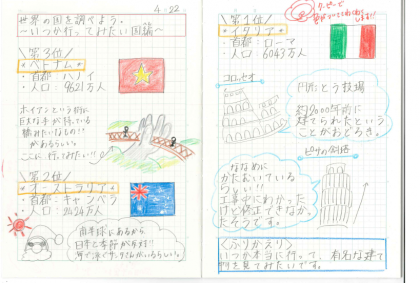 4-22
世界の国を調べよう。
〜いつか行ってみたい国編〜
第3位
ベトナム
・首都：ハノイ
・人口：9621万人
ホイアンという街に
巨大な手が持っている
橋みたいなもの!!
があるらしい。
ここに行ってみたい!!
第2位
オーストラリア
・首都：キャンベラ
南半球にあるから
日本と季節が反対!!
第1位
イタリア
・首都：ローマ
・人口：6043万人
コロッセオ
円形とう技場
建てられたという
ことがおどろき。
ピサの斜塔
ななめに
かたむいている
らしい!!
工事中にわかった
けど修正できなかっ
たそうです。
＜ふりかえり＞
いつか本当に行って、有名な建て
物を見てみたいです。